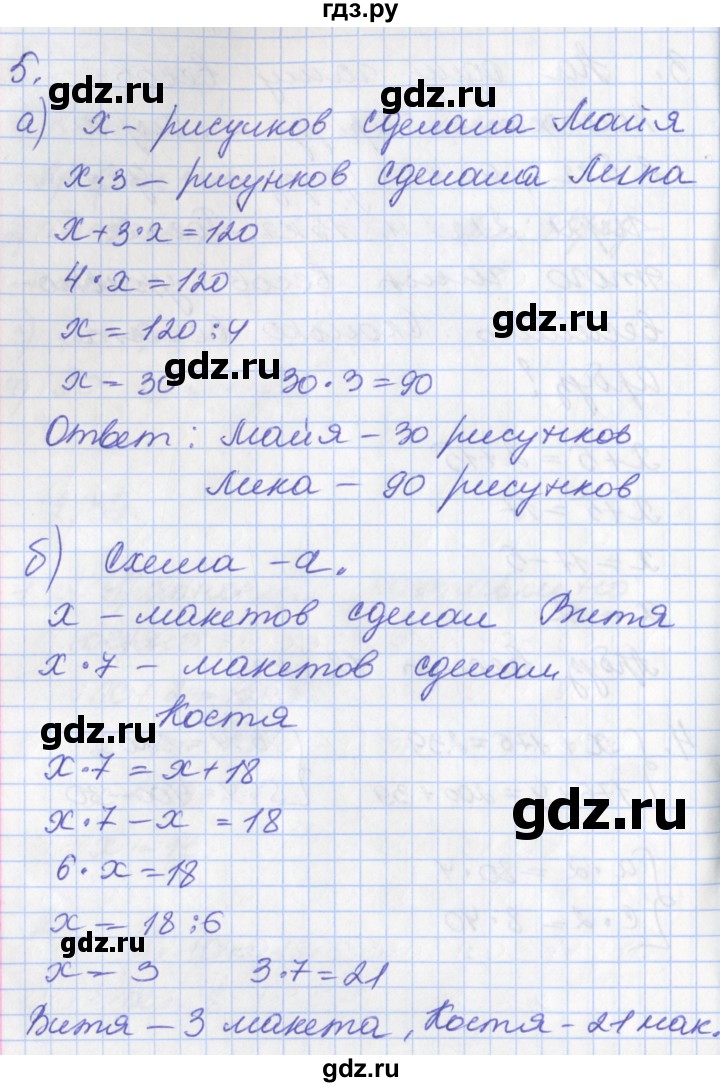 гдз.ру
5.
gdz.ru
а) х - рисунков сделала Майя
gdz.ru
х·3 – рисунков сделала Лика
х+3·х=120
4·х=120
gdz.ru
х=120:4
gdz.ru
х=30 30·3=90
Ответ: Майя – 30 рисунков
Лика – 90 рисунков
gdz.ru
б) Схема – а.
gdz.ru
х – макетов сделал Витя
х·7 – макетов сделал
Костя
gdz.ru
х·7=х+18
gdz.ru
х·7-х=18
6·х=18
х=18:6
gdz.ru
х=3 3·7=21
Витя – 3 макета, Костя – 21 мак.
gdz.ru
gdz.ru